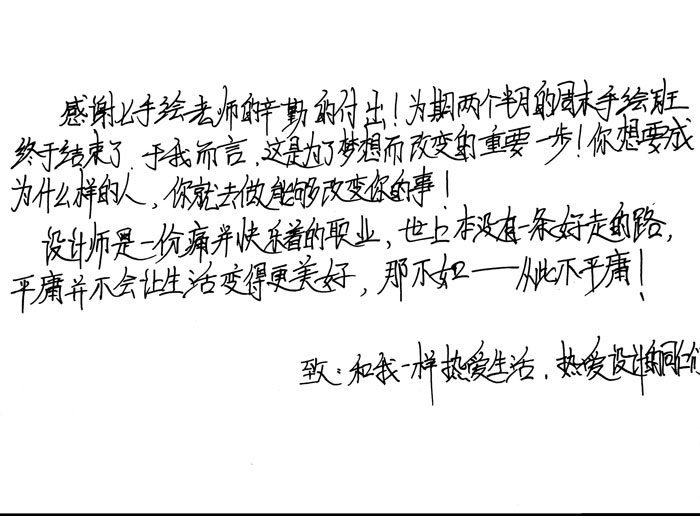 感谢上手绘老师的辛勤的付出！为期两个半月的周末手绘班
终于结束了.于我而言.这是为了梦想而改变的重要一步！你想要成
为什么样的人，你就去做能够改变你的事！
设计师是一份痛并快乐着的职业，世上本没有一条好走的路，
平庸并不会让生活变得更美好，那不如——从此不平庸！
致：和我一样热爱生活.热爱设计的同仁们